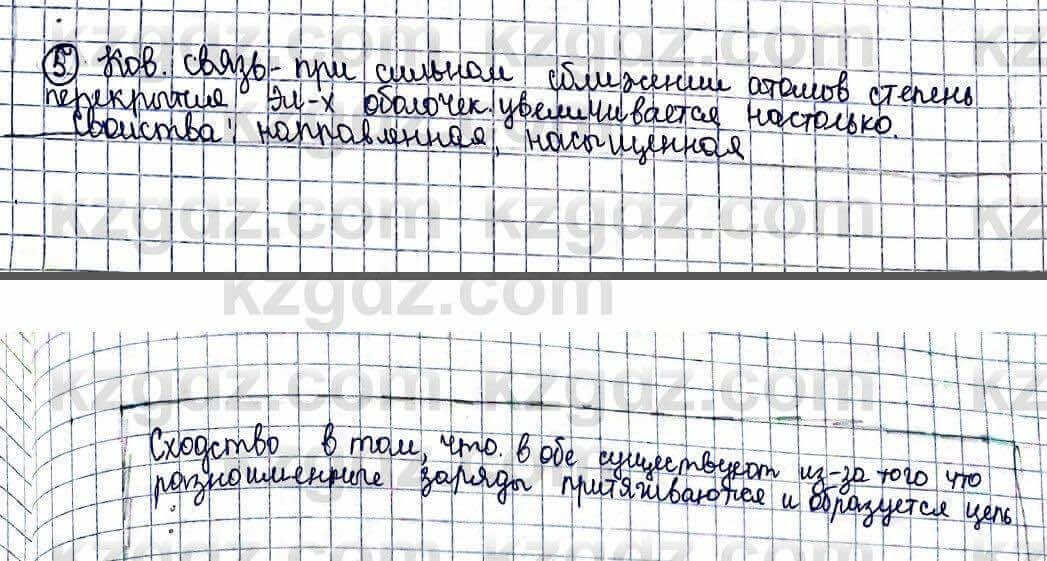 ⑤ Ков. связь - при сильном сближении атомов степень
перекрытия эл-х оболочек увеличивается настолько.
Свойства: направленная, насыщенная
Сходство в том, что. в обе существуют из-за того что
разноименные заряды притягиваются и образуется цепь
kzgdz.com